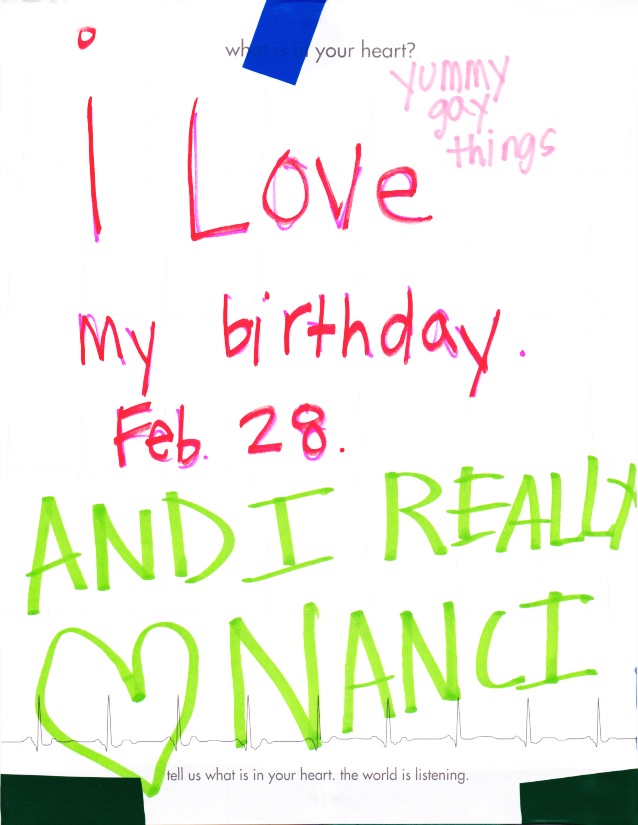 what is in your heart?
yummy
gay
things
i Love
my birthday.
Feb. 28.
AND I REALLY
NANCI
tell us what is in your heart. the world is listening.